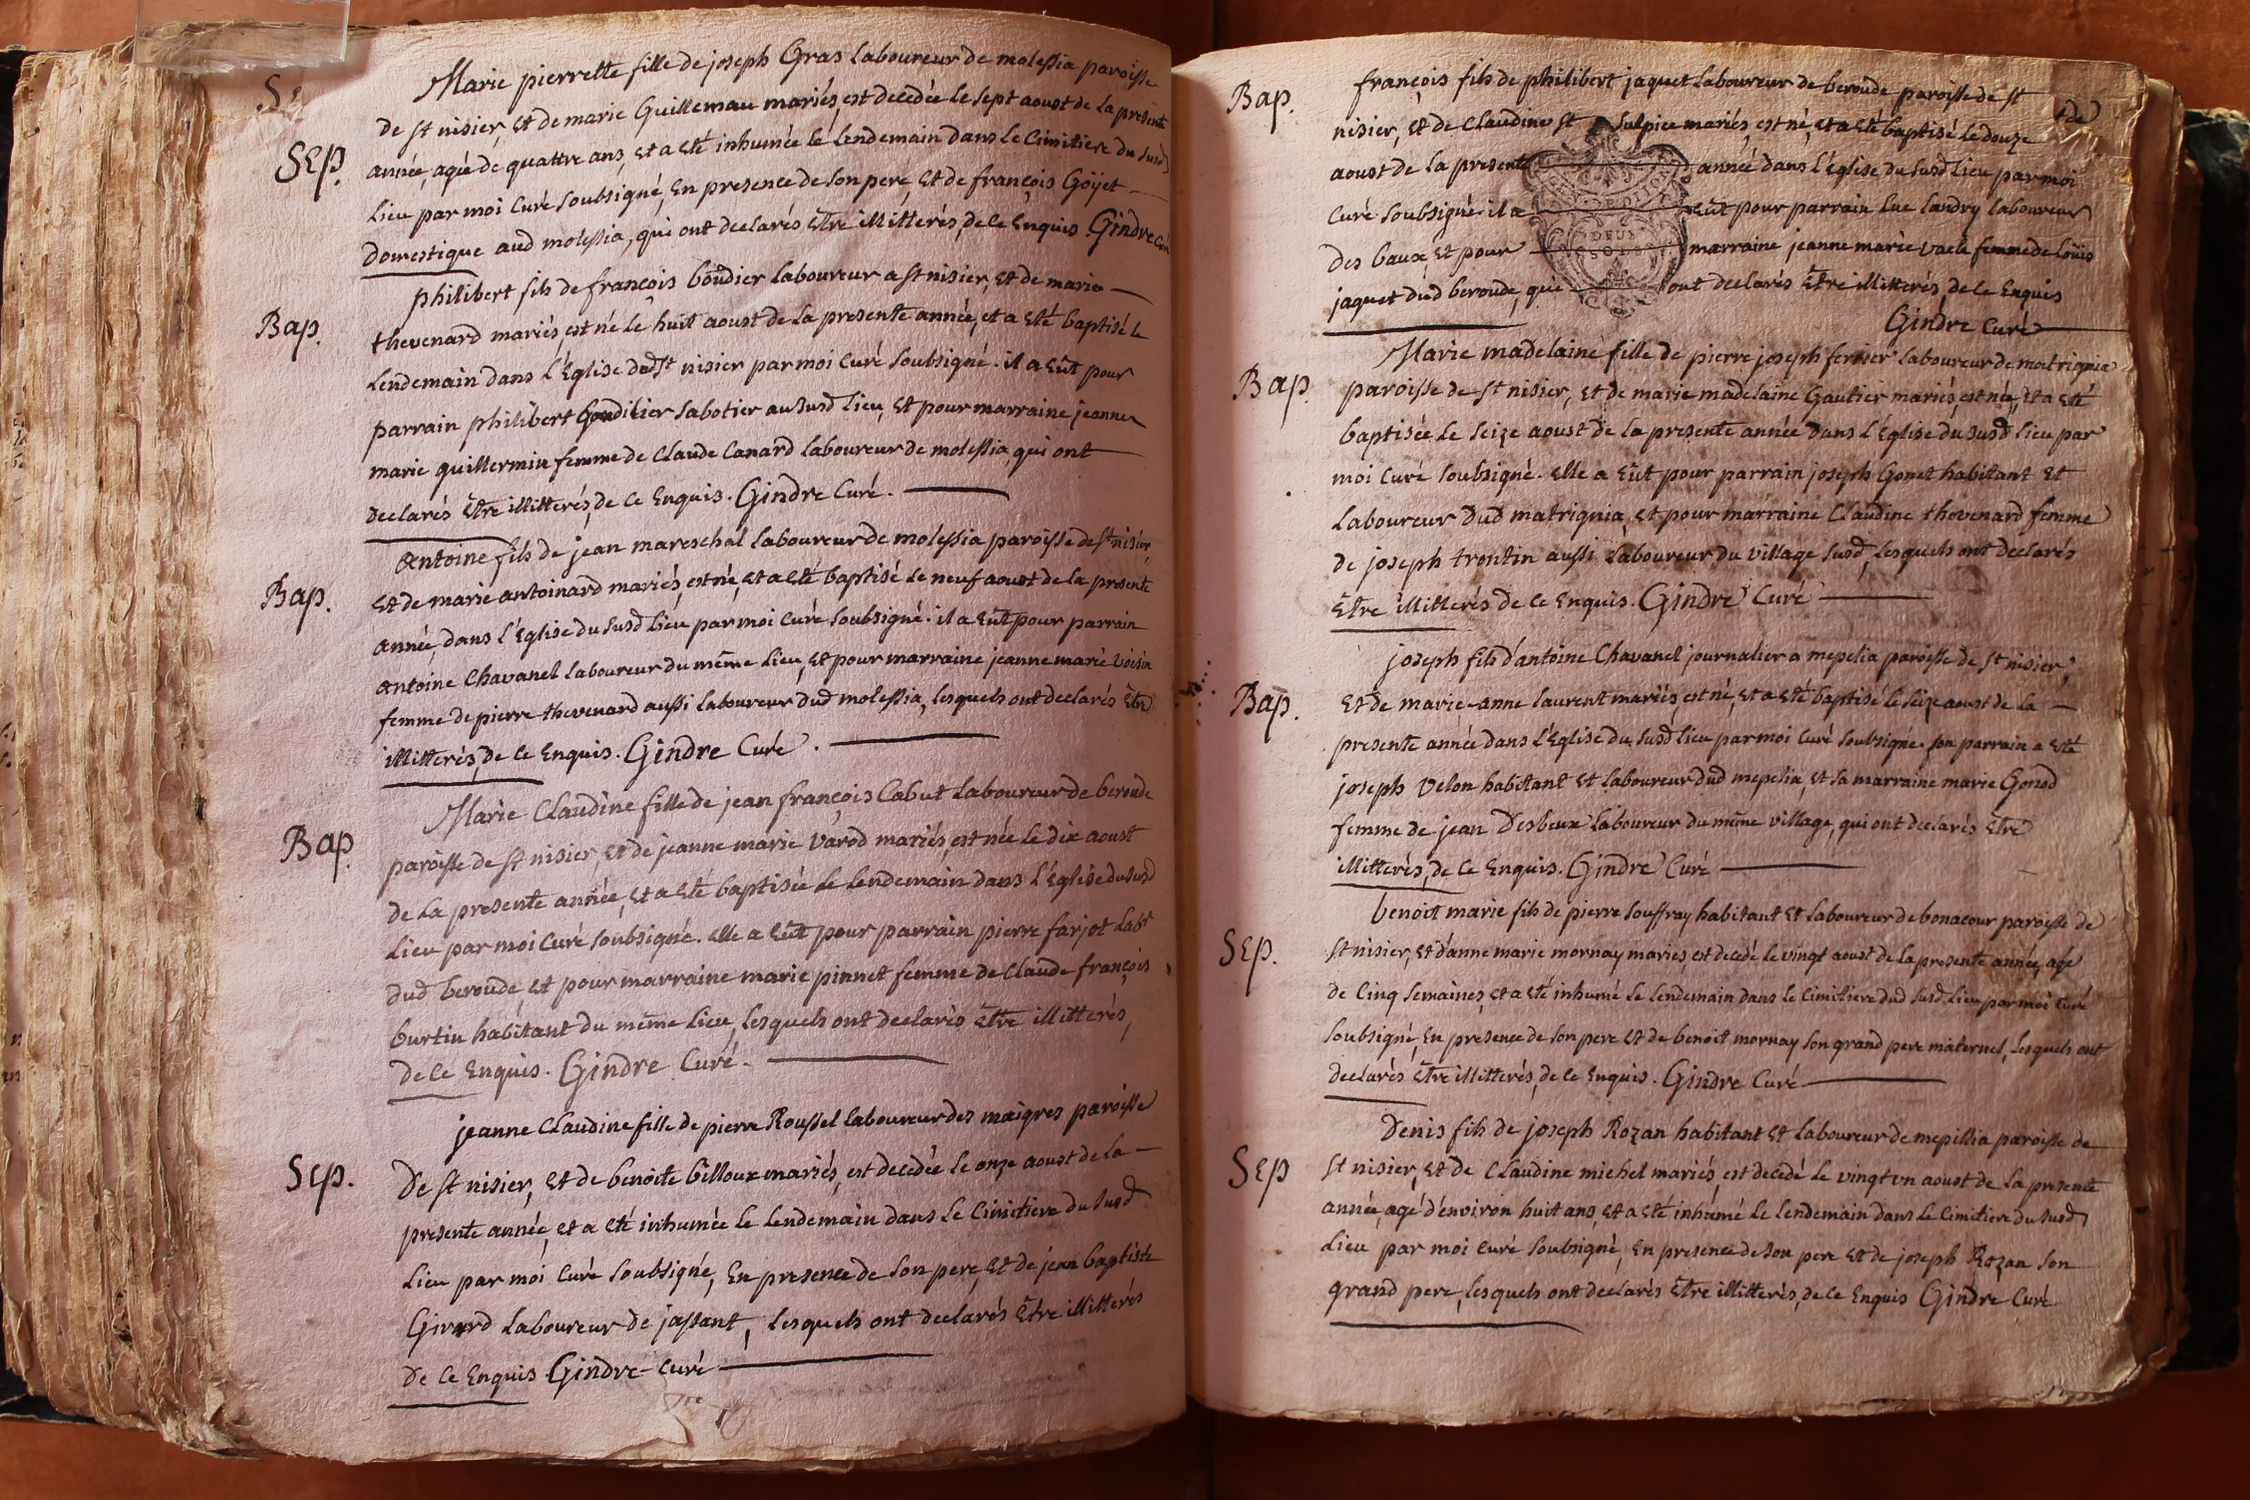 Se
Marie pierrette fille de joseph Gras Laboureur de molessia paroisse
Sep.
de st nisier, et de marie Guillemau mariés, est decedée Le sept aoust de la presente
année, agée de quattre ans, et a eté inhumée le Lendemain dans Le Cimitiere du susd
Lieu par moi Curé soubsigné, En presence de son pere, et de françois Göyet
Domestique aud molessia, qui ont declarés être illitterés, de Ce Enquis Gindre Curé
philibert fils de françois bondier Laboureur a st nisier, et de marie
Bap.
thevenard mariés, est né Le huit aoust de La presente année, et a eté baptisé le
Lendemain dans l'Eglise dud st nisier par moi Curé soubsigné. il a eüt pour
parrain philibert Gondilier sabotier au susd Lieu, et pour marraine jeanne
marie guillermin femme de Claude Canard Laboureur de molessia, qui ont
declarés être illitterés, de Ce Enquis. Gindre Curé.
antoine fils de jean mareschal Laboureur de molessia paroisse de st nisier,
Bap.
et de marie antoinard mariés, est né, et a eté baptisé Le neuf aoust de La presente
année, dans l'Eglise du susd Lieu par moi Curé soubsigné. il a eüt pour parrain
antoine Chavanel Laboureur du même Lieu, et pour marraine jeanne marie Voisin
femme de pierre thevenard aussi Laboureur dud molessia, Lesquels ont declarés être
illitterés, de Ce Enquis. Gindre Curé.
Marie Claudine fille de jean françois Cabut Laboureur de beroude
Bap.
paroisse de st nisier, et de jeanne marie Varod mariés, est née Le dix aoust
de La presente année, et a eté baptisée Le Lendemain dans l'Eglise du susd
Lieu par moi Curé soubsigné. elle a eüt pour parrain pierre farjot Labr
dud beroude, et pour marraine marie pinnet femme de Claude françois
burtin habitant du même Lieu, Lesquels ont declarés être illitterés,
de Ce Enquis. Gindre Curé.
jeanne Claudine fille de pierre Roussel Laboureur des maigres paroisse
Sep.
De st nisier, et de benoite billoux mariés, est decedée Le onze aoust de La
presente année, et a eté inhumée Le Lendemain dans Le Cimitiere du susd
Lieu par moi Curé soubsigné, En presence de son pere, et de jean baptiste
Girard Laboureur de jassant, Lesquels ont declarés être illitterés
De Ce Enquis. Gindre Curé
Bap.
françois fils de philibert jaquet Laboureur de beroude paroisse de st
nisier, et de Claudine st sulpice mariés, est né, et a eté baptisé Le douze + de
aoust de La presente année dans l'Eglise du susd Lieu par moi
Curé soubsigné. il a eüt pour parrain Luc Landry Laboureur
des baux, et pour marraine jeanne marie vacle femme de Loüis
jaquet dud beroude, qui ont declarés être illitterés, de Ce Enquis
Gindre Curé
Marie madelaine fille de pierre joseph ferrier Laboureur de matrignia
Bap.
paroisse de st nisier, et de marie madelaine Gautier mariés, est née, et a eté
baptisée Le seize aoust de La presente année dans l'Eglise du susd Lieu par
moi Curé soubsigné. elle a eüt pour parrain joseph Gonet habitant et
Laboureur dud matrignia, et pour marraine Claudine thevenard femme
de joseph trontin aussi Laboureur du village susd, Lesquels ont declarés
être illitterés de Ce Enquis. Gindre Curé
joseph fils d'antoine Chavanel journalier a mepelia paroisse de st nisier,
Bap.
et de marie-anne Laurent mariés, est né, et a eté baptisé Le seize aoust de La
presente année dans l'Eglise du susd Lieu par moi Curé soubsigné. son parrain a eté
joseph Velon habitant et Laboureur dud mepelia, et sa marraine marie Gonod
femme de jean Desbeux Laboureur du même village, qui ont declarés être
illitterés, de Ce Enquis. Gindre Curé
benoit marie fils de pierre souffray habitant et Laboureur de bonacour paroisse de
Sep.
st nisier, et d'anne marie mornay mariés, est decedé Le vingt aoust de La presente année, agé
de Cinq semaines, et a eté inhumé Le Lendemain dans Le Cimitiere dud susd Lieu par moi Curé
soubsigné, En presence de son pere et de benoit mornay son grand pere maternel, Lesquels ont
declarés être illitterés, de Ce Enquis. Gindre Curé
Denis fils de joseph Rozan habitant et Laboureur de mepillia paroisse de
Sep
st nisier, et de Claudine michel mariés, est decedé Le vingt vn aoust de La presente
année, agé d'environ huit ans, et a eté inhumé Le Lendemain dans Le Cimitiere du susd
Lieu par moi Curé soubsigné, En presence de son pere et de joseph Rozan son
grand pere, Lesquels ont declarés être illitterés, de Ce Enquis Gindre Curé